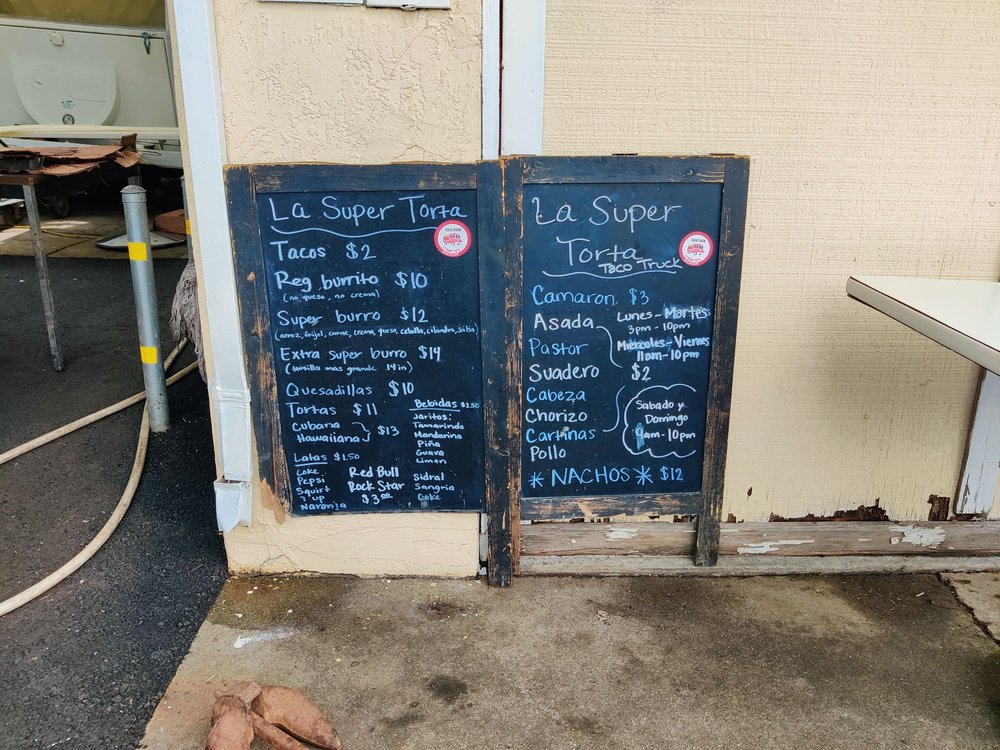 La Super Torta
Tacos $2
Reg burrito $10
(no queso, no crema)
Super burro $12
(arroz, frijol, carne, crema, queso, cebolla, cilantro, salsa)
Extra super burro $14
(tortilla mas grande 14 in)
Quesadillas $10
Tortas $11
Cubana
Hawaiiana
$13
Latas $1.50
Coke
Pepsi
Squirt
7 up
Naranja
Red Bull
Rock Star
$3.00
Bebidas $2.50
Jaritos:
Tamarindo
Mandarina
Piña
Guava
Limon
Sidral
Sangria
Coke
La Super
Torta
Taco Truck
Camaron $3
Asada
Pastor
Suadero
Cabeza
Chorizo
Carnitas
Pollo
$2
Lunes - Martes
3pm - 10pm
Miercoles - Viernes
11am - 10pm
Sabado y
Domingo
9am - 10pm
*NACHOS* $12